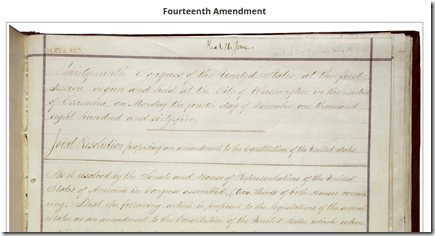 Fourteenth Amendment
Thirty-ninth Congress of the United States, at the first
session, begun and held at the City of Washington, in the District
of Columbia, on Monday the fourth day of December one thousand
eight hundred and sixty-five.
Joint Resolution proposing an amendment to the Constitution of the United States.
Be it resolved by the Senate and House of Representatives of the United
States of America in Congress assembled, (two thirds of both Houses concur-
ring,) That the following article be proposed to the legislatures of the several
States as an amendment to the Constitution of the United States, which when